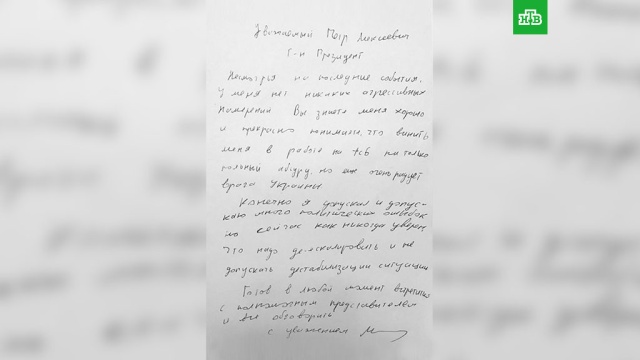 Уважаемый Петр Алексеевич
Г-н Президент
Несмотря на последние события,
у меня нет никаких агрессивных
намерений Вы знаете меня хорошо
и прекрасно понимаете, что винить
меня в работе на fсб не только
полный абсурд, но еще очень радует
врага Украины
Конечно я допускал и допус-
каю много политических ошибок
но сейчас как никогда уверен
что надо деэскалировать и не
допускать дестабилизации ситуации
Готов в любой момент встретиться
с полномочным представителем
и все обговорить
с уважением
НТВ